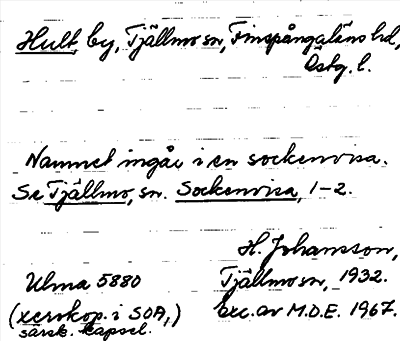 Hult by, Tjällmo sn, Finspångaläns hd,
Östg. l.
Namnet ingår i en sockenvisa.
Se Tjällmo, sn. Sockenvisa, 1-2.
H. Johansson,
Ulma 5880
Tjällmo sn, 1932.
(xerokop. i SOA,)
särsk. kapsel.
exc. av M.D.E. 1967.